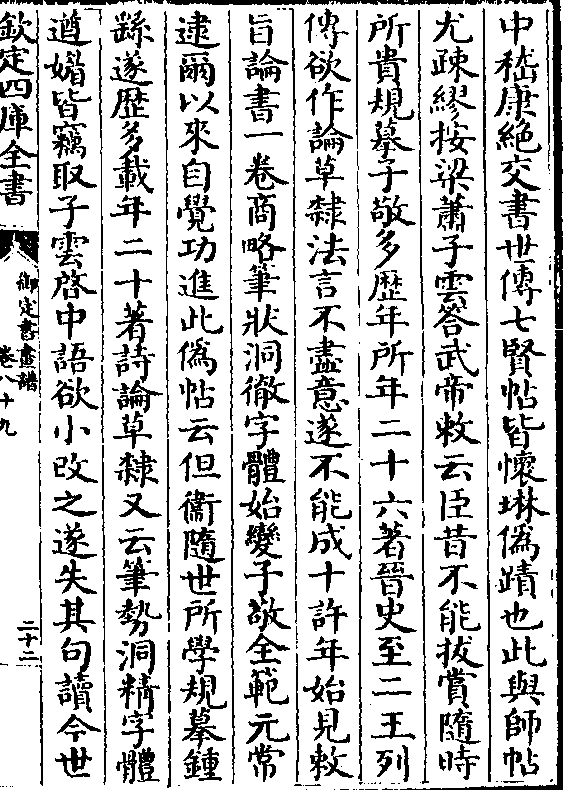 中嵇康絶交書世傳七賢帖皆懷琳僞蹟也此與師帖
尤疎繆按梁蕭子雲答武帝敕云臣昔不能拔賞隨時
所貴規摹子敬多歴年所年二十六著晉史至二王列
傳欲作論草隸法言不盡意遂不能成十許年始見敕
旨論書一卷商略筆狀洞徹字體始變子敬全範元常
逮爾以來自覺功進此僞帖云但衞隨世所學規摹鍾
繇遂歴多載年二十著詩論草隸又云筆勢洞精字體
遒媚皆竊取子雲啓中語欲小改之遂失其句讀今世
欽定四庫全書
御定書畫譜
卷八十九
二十二